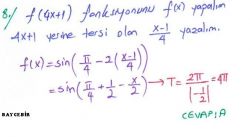 8-) f(4x+1) fonksiyonunu f(x) yapalım
4x+1 yerine tersi olan \frac{x-1}{4} yazalım.
f(x)=sin(\frac{π}{4} - 2(\frac{x-1}{4}))
=sin(\frac{π}{4} + \frac{1}{2} - \frac{x}{2}) → T = \frac{2π}{|-\frac{1}{2}|} = 4π
CEVAP: A
BAYCEBİR